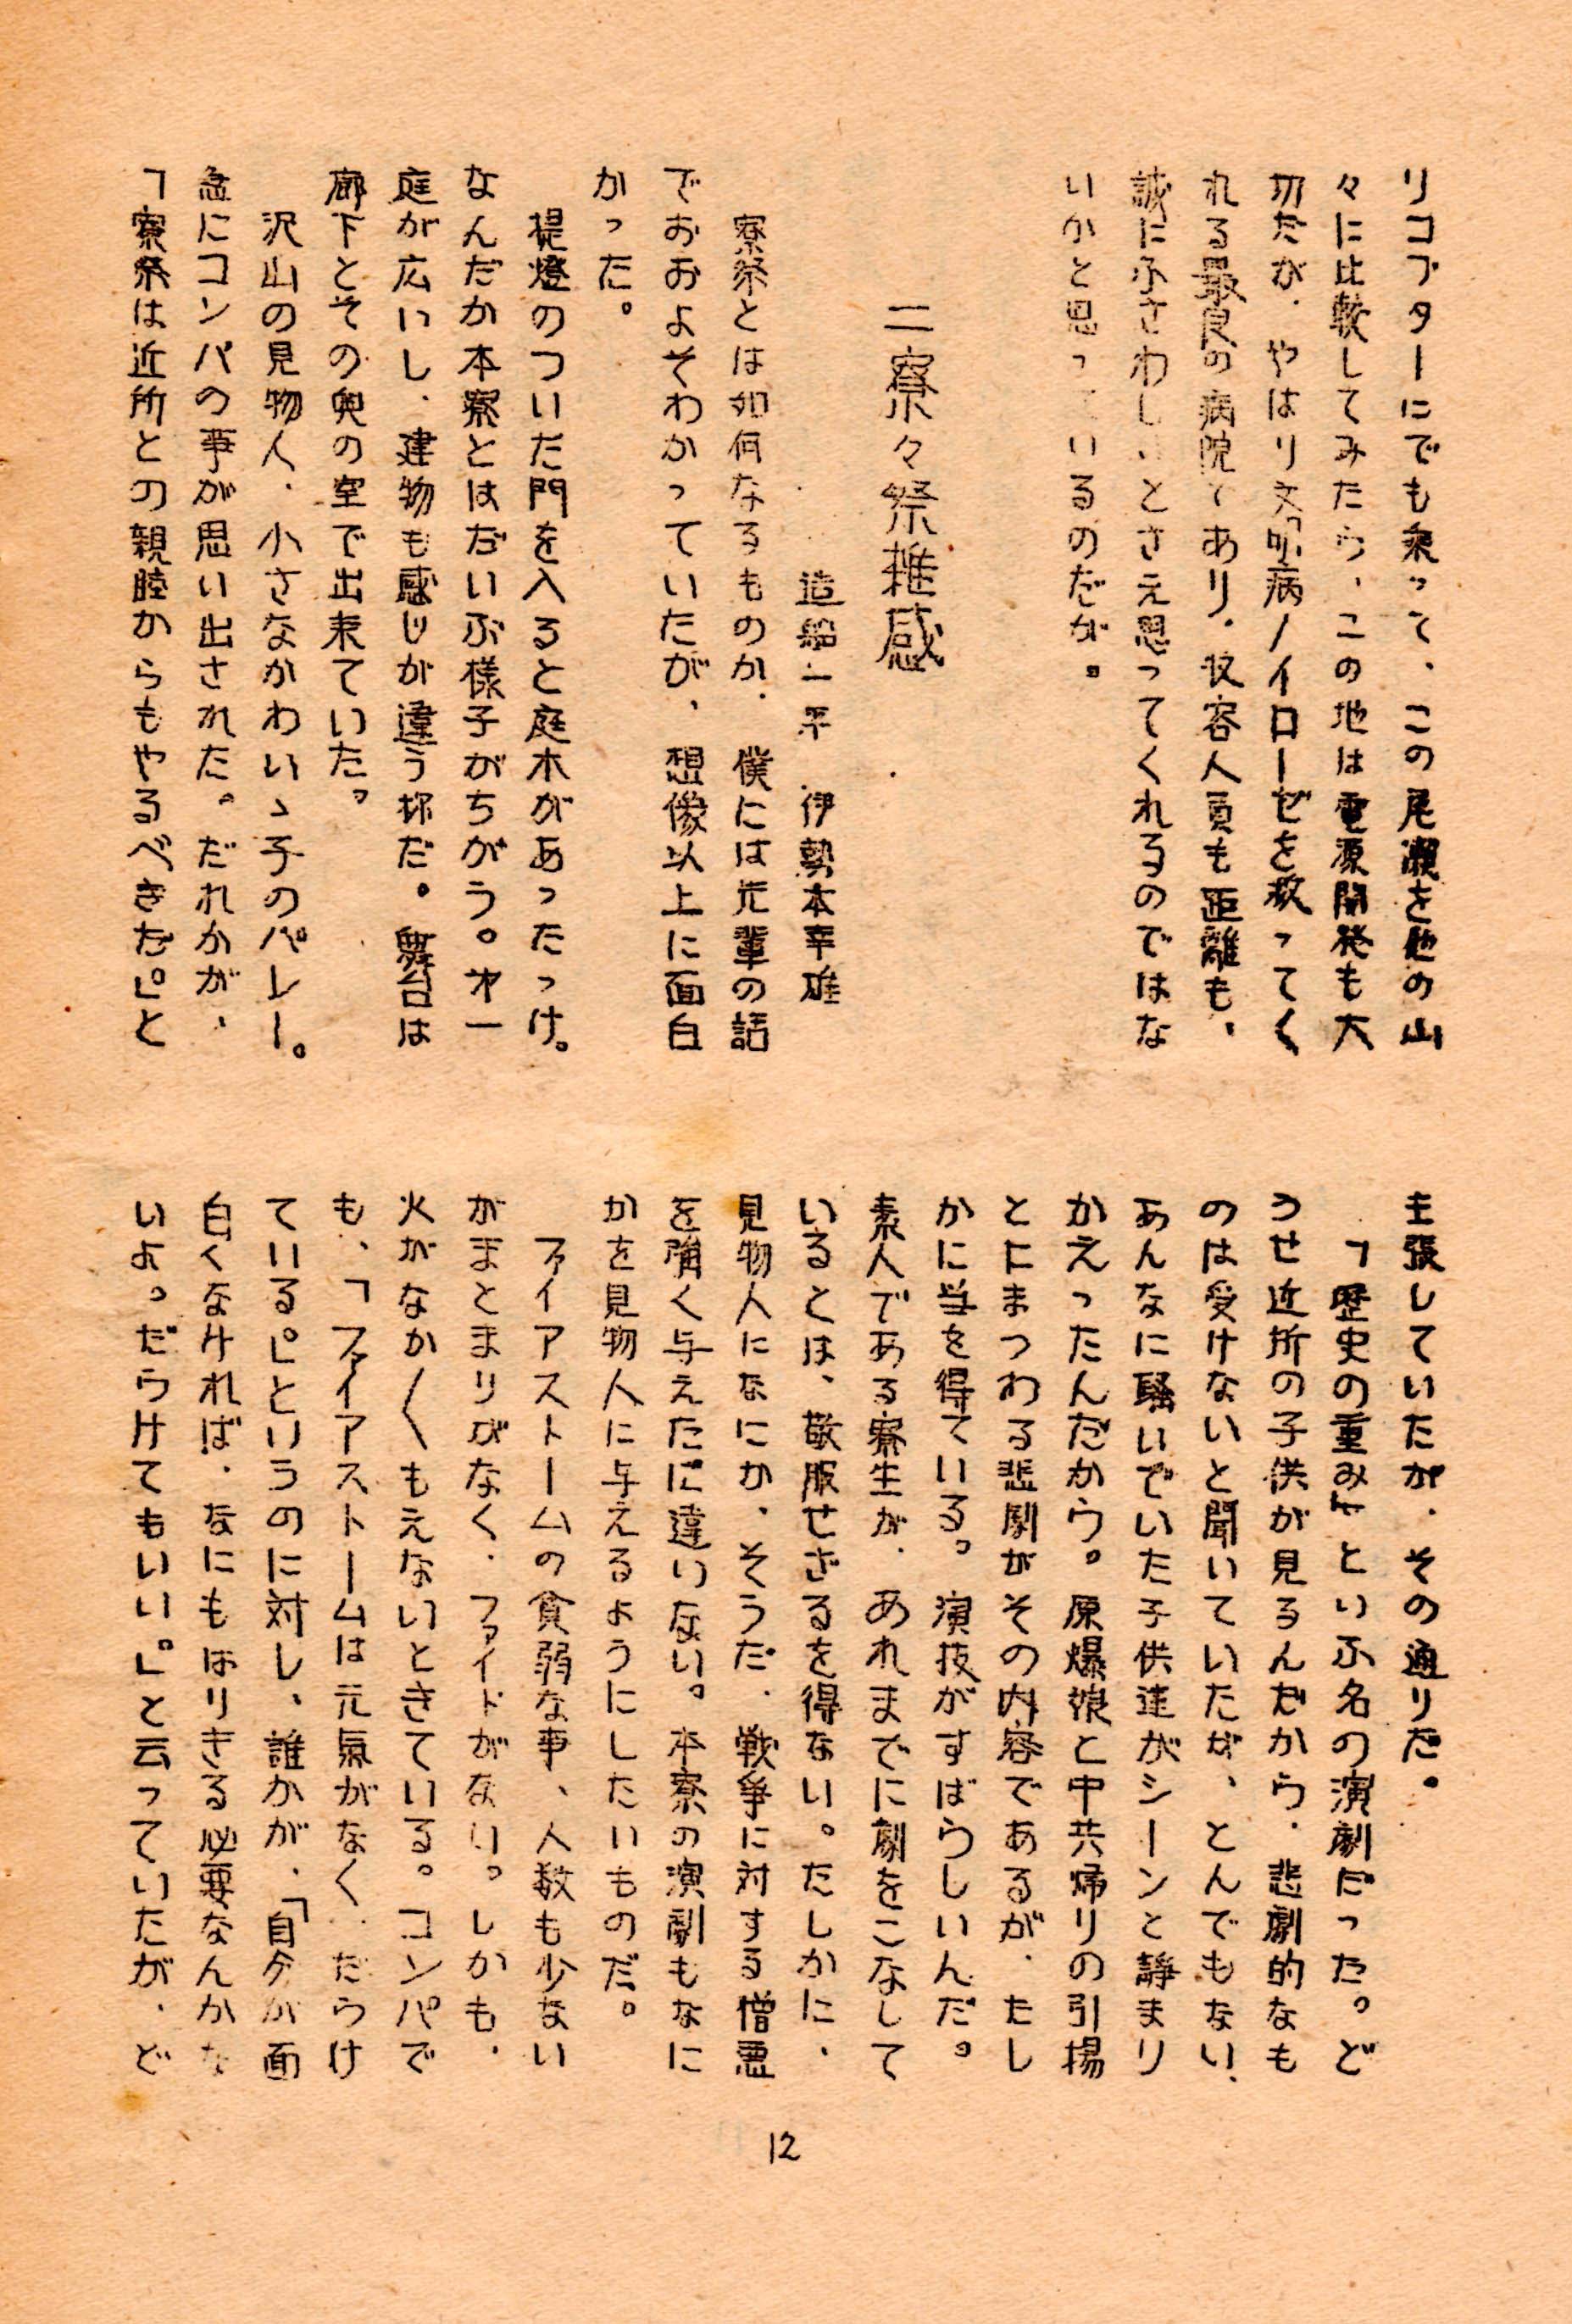 リコプターにでも乗って、この尾瀬を他の山
々に比較してみたら、この地は電源開発も大
切だが、やはり文明病ノイローゼを救ってく
れる最良の病院であり、収容人員も距離も、
誠にふさわしいとさえ思ってくれるのではな
いかと思っているのだが。
二寮々祭雑感
造船一平 伊勢本幸雄
寮祭とは如何なるものか、僕には先輩の話
でおおよそわかっていたが、想像以上に面白
かった。
提燈のついた門を入ると庭木があったっけ。
なんだか本寮とはだいぶ様子がちがう。才一
庭が広いし、建物も感じが違う様だ。舞台は
廊下とその奥の室で出来ていた。
沢山の見物人、小さなかわいゝ子のバレー。
急にコンパの事が思い出された。だれかが、
「寮祭は近所との親睦からもやるべきだ」と
主張していたが、その通りだ。
「歴史の重み」といふ名の演劇だった。ど
うせ近所の子供が見るんだから、悲劇的なも
のは受けないと聞いていたが、とんでもない、
あんなに騒いでいた子供達がシーンと静まり
かえったんだから。原爆娘と中共帰りの引揚
とにまつわる悲劇がその内容であるが、たし
かに当を得ている。演技がすばらしいんだ。
素人である寮生が、あれまでに劇をこなして
いるとは、敬服せざるを得ない。たしかに、
見物人になにか、そうだ、戦争に対する憎悪
を強く与えたに違いない。本寮の演劇もなに
かを見物人に与えるようにしたいものだ。
ファイアストームの貧弱な事、人数も少ない
がまとまりがなく、ファイトがない。しかも、
火がなか〱もえないときている。コンパで
も、「ファイアストームは元氣がなく、だらけ
ている」というのに対し、誰かが、「自分が面
白くなければ、なにもはりきる必要なんかな
いよ。だらけてもいい。」と云っていたが、ど
12